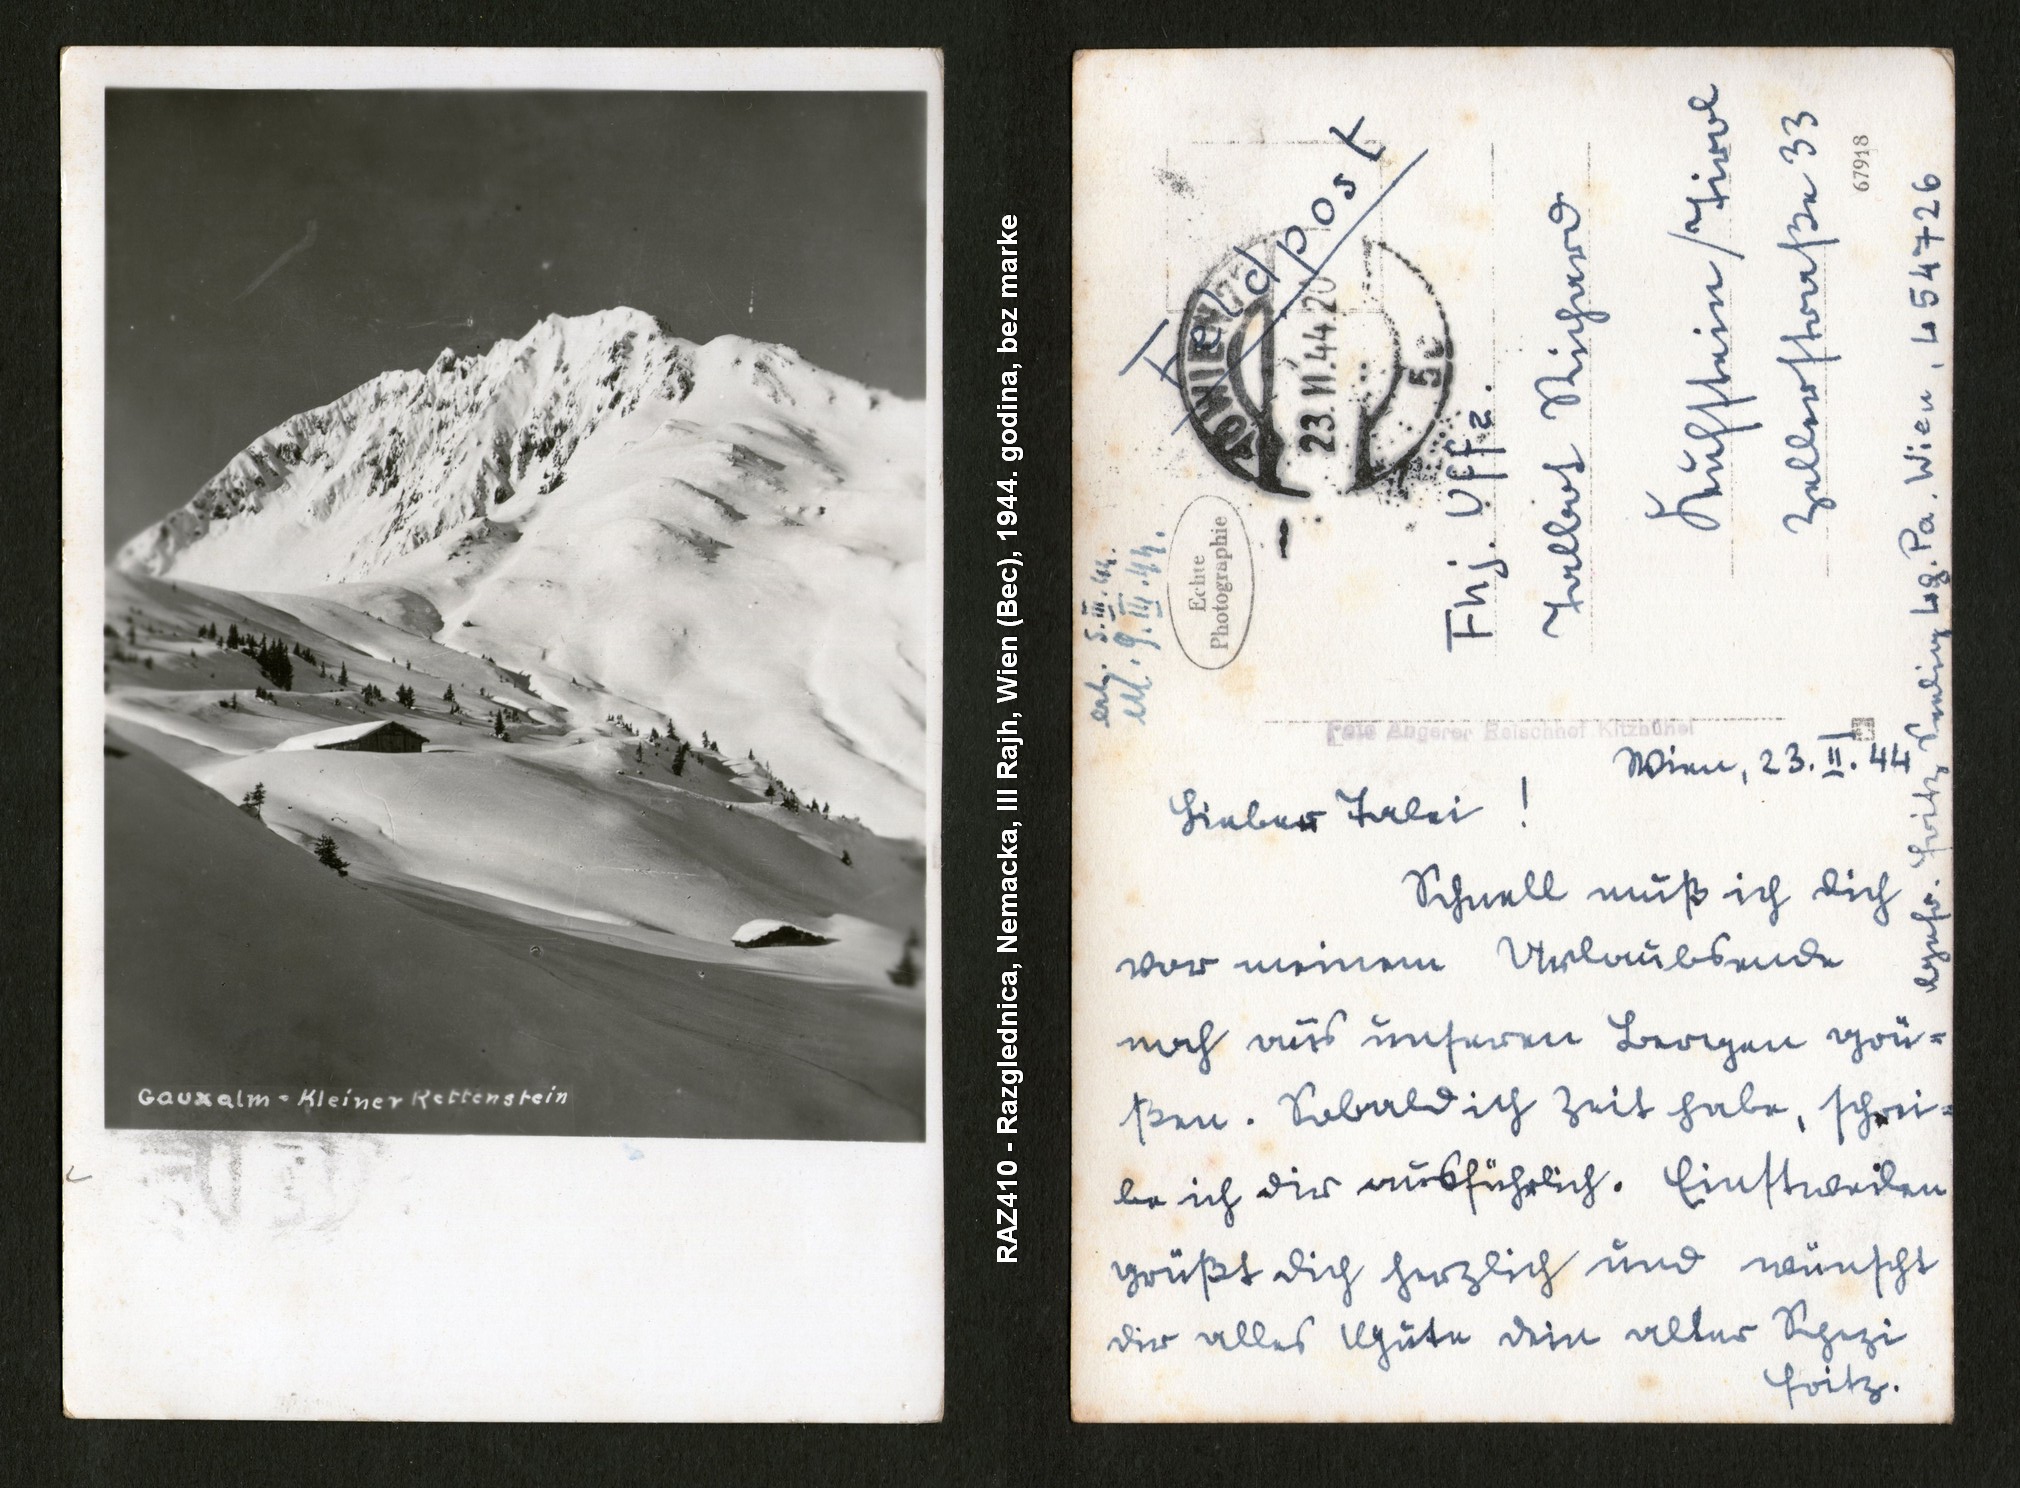 Gauxalm - Kleiner Rettenstein
RAZ410 - Razglednica, Nemacka, III Rajh, Wien (Bec), 1944. godina, bez marke
Feldpost
WIEN
23.II.44.20
5c
erh. 5.III.44.
erl. 9.III.44.
Echte
Photographie
Fhj. Uffz.
Talbot Richard
Kufstein/Tirol
Zellerstraße 33
67918
Foto Angerer Reischhof Kitzbühel
Fritz
Lg. Pa. Wien, L 54726
Wien, 23. II. 44
Lieber Talei!
Schnell muß ich dich
vor meinem Urlaubsende
noch aus unseren Bergen grü-
ßen. Sobald ich Zeit habe, schrei-
be ich dir ausführlich. Einstweilen
grüßt dich herzlich und wünscht
dir alles Gute dein alter Spezi
Fritz.